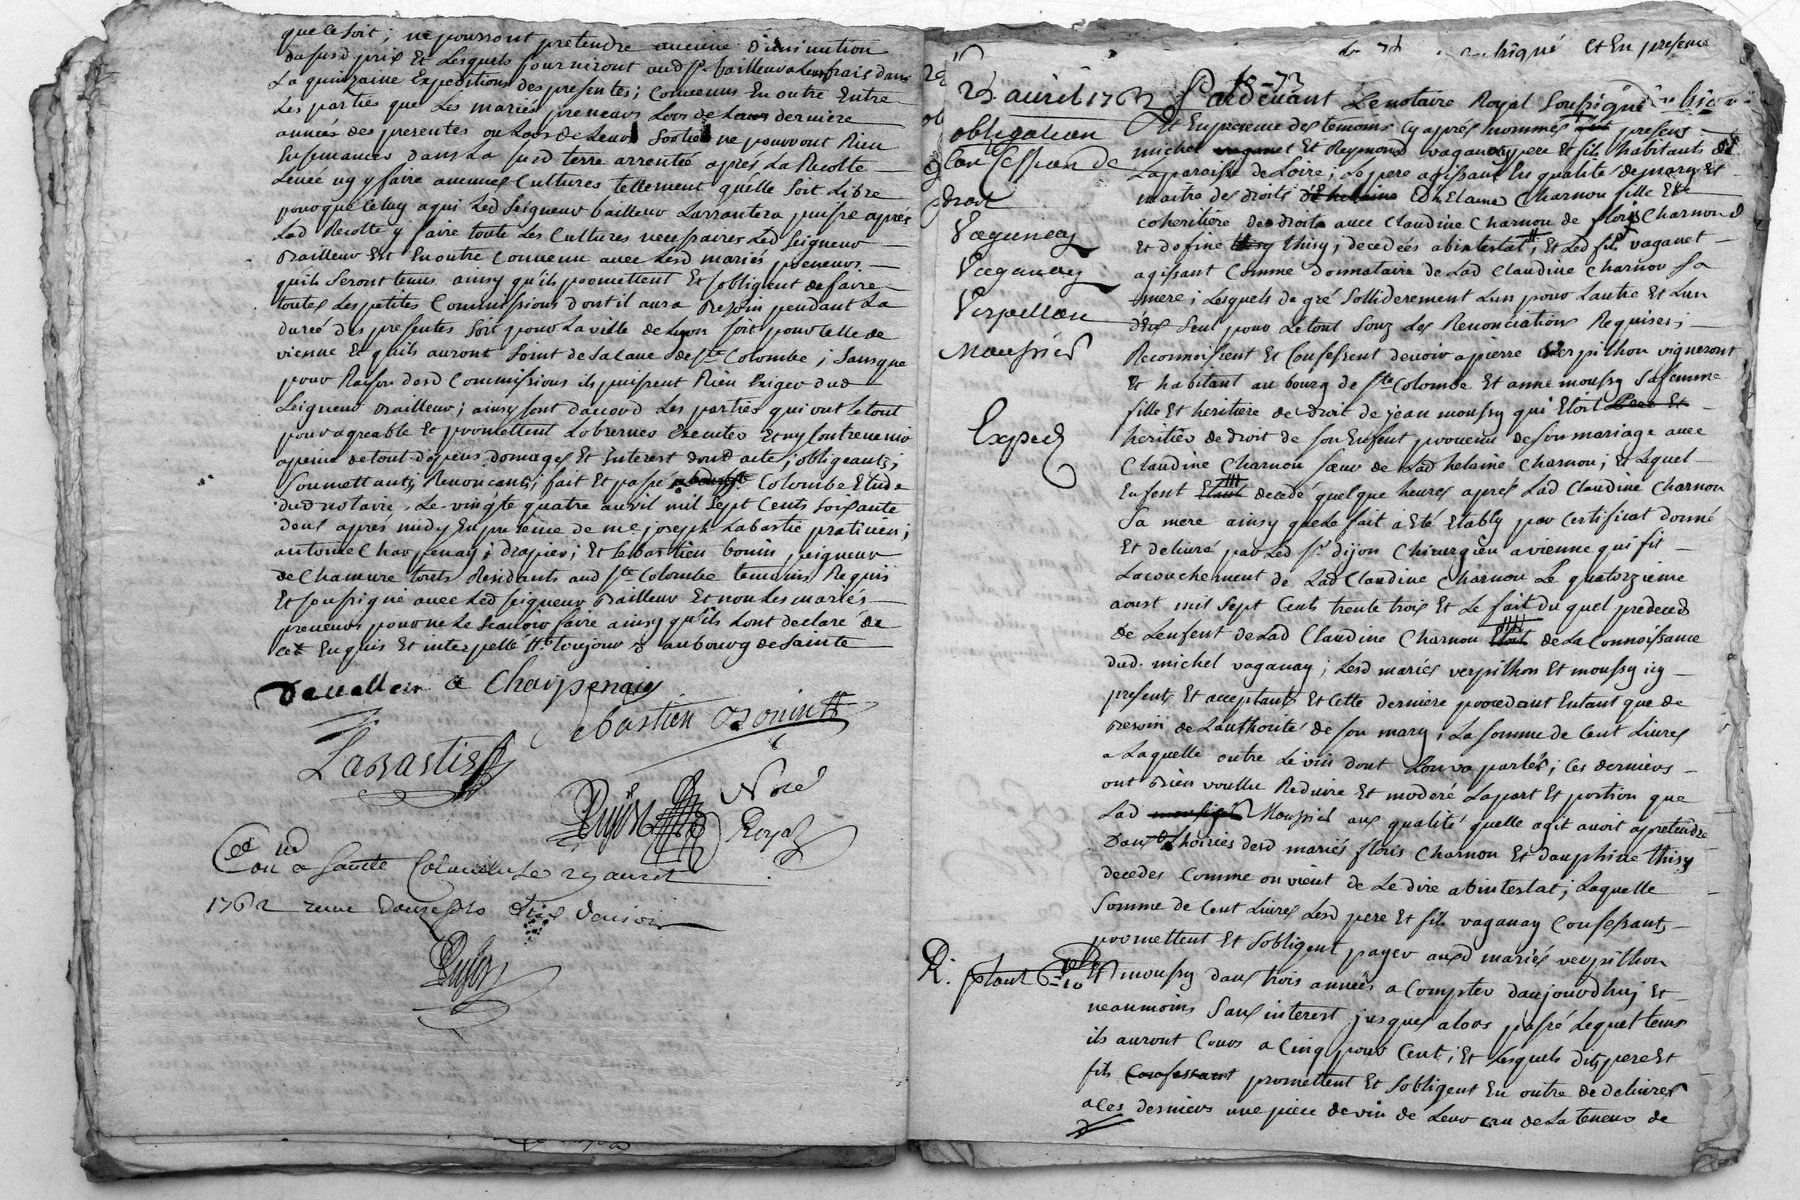 que ce soit; ne pourront pretendre aucune diminution
dususd prix Et Lesquels fourniront aud Sr bailleur a leurs frais dans
La quinzaine Expedition des presentes; Convenus En outre Entre
Les parties que Les mariés preneurs Lors de Leurs derniere
année des presentes ou Lors de Leur Sortie ne pourront Rien
Ensemancer dans La susd terre arrentée aprés La Recolte
Levée ny y faire aucunes Cultures tellement qu'elle soit Libre
pour que Celuy a qui Led Seigneur bailleur Larrantera puisse aprés
Lad Recolte y faire toute Les Cultures necessaires Led Seigneur
Bailleur Est En outre Convenu avec Lesd mariés preneurs
qu'ils Seront tenus ainsy qu'ils promettent Et s'obligent de faire
toutes Les petites Commissions dont il aura Besoin pendant La
durée des presentes Soit pour La ville de Lyon soit pour Celle de
vienne Et qu'ils auront Soint de Sa Cave de Ste Colombe; Sans que
pour Raison desd Commissions ils puissent Rien Exiger dud
Seigneur Bailleur; ainsy sont dacord Les parties qui ont le tout
pour agreable Et promettent Lobserver Executer Et ny Contrevenir
apeine de tout depens domages Et Interest dont acte; obligeants;
Soumettants; Renoncants; fait Et passé Colombe Etude
dud notaire Le vingte quatre avril mil Sept Cents Soixante
deux aprés midy En presence de me joseph Labastie praticien;
antoine Charpenay; drapier; Et Sebastien bonin peigneur
de Chamure touts Residants aud Ste Colombe temoins Requis
Et soussigné avec Led seigneur Bailleur Et non Les mariés
preneurs pour ne Le scavoir faire ainsy qu'ils Lont declaré de
ce Enquis Et interpellé toujour au bourg de Sainte
a Charpenay
Sebastien Bonin
Labastie
Pujol Nore
Royal
a Sainte Colombe Le 29 avril
1762
Pujol
Et En presence
18-73
25 avril 1762
Pardevant Le notaire Royal Soussigné
obligation
Et En presence des temoins Cy aprés nommés presens
Con Cession de
michel vaganet Et Reymond vaganay pere Et fils habitants de
La paroisse de Loire, Le pere agissant En qualité de mary Et
droit
maitre des droits de helaine d'hElaine Charnon fille Et
coheritiere de droits avec Claudine Charnon de floris Charnon
Vaganay
Et dofine thisy thisy; decedées abintestat; Et Led fils vaganet
Vaganay
agissant Comme donnataire de Lad Claudine Charnon Sa
mere; Lesquels de gré Solliderement Lun pour Lautre Et Lun
Verpillon
d'Eux Seul pour Le tout Souz Les Renonciations Requises;
Moussied
Reconnoissent Et Confessent devoir a pierre verpilhon vigneront
Et habitant au bourg de Ste Colombe Et anne moussy Sa femme
fille Et heritiere de droit de jean moussy qui Etoit Pere Et
Exped
heritier de droit de Son Enfent provenu de son mariage avec
Claudine Charnon sœur de Lad helaine Charnon; Et Lequel
Enfent Etant decedé quelque heures aprés Lad Claudine Charnon
Sa mere ainsy que Le fait a Eté Etably par Certificat donné
Et delivré par Led Sr dijon Chirurgien a vienne qui fit
Lacouchement de Lad Claudine Charnon Le quatorzieme
aoust mil Sept Cents trente trois Et Le fait du quel predeced
de Lenfent de Lad Claudine Charnon Etoit de La Connoissance
dud. michel vaganay; Lesd mariés verpilhon Et moussy icy
presents Et acceptants Et Cette derniere procedant Entant que de
Besoin de Lauthorité de son mary; La somme de Cent Livres
a Laquelle outre Le vin dont Lon va parler; Ces derniers
ont Bien voullu Reduire Et moderé La part Et portion que
Lad Moussied aux qualité quelle agit avoit a pretendre
Dans Lhoiries desd mariés floris Charnon Et dauphine thisy
decedes Comme on vient de Le dire abintestat; Laquelle
Somme de Cent Livres Lesd pere Et fils vaganay Confessants
promettent Et Sobligent payer auxd mariés verpilhon
Et moussy dans trois années a Compter daujourdhuy Et
neaumoins Sans interest jusques alors passé Lequel tems
ils auront Cours a Cinq pour Cent; Et Lesquels dits pere Et
fils Confessent promettent Et Sobligent En outre de delivrer
a Ces derniers une piece de vin de Leur cru de La teneur de